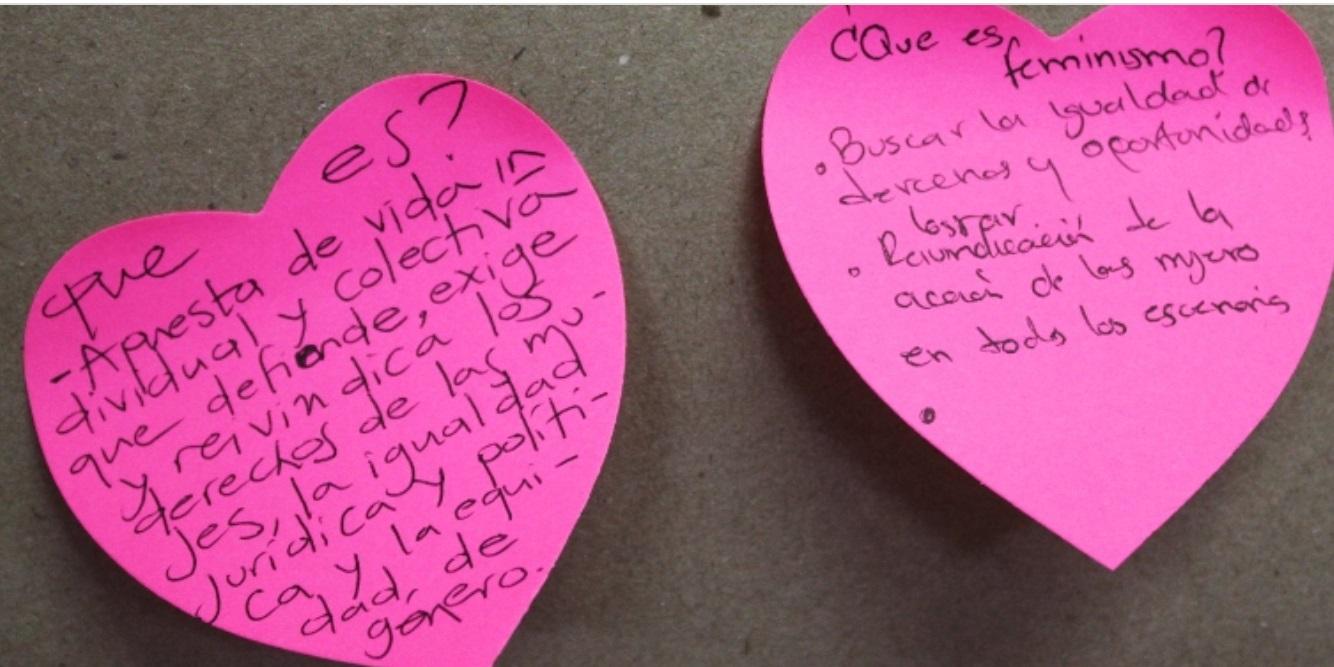 que es?
-Apuesta de vida in
dividual y colectiva
que defiende, exige
y reivindica los
derechos de las mu-
jes, la igualdad
jurídica y políti-
ca y la equi-
dad, de
género.
¿Que es
feminismo?
• Buscar la igualdad de
derechos y oportunidades
lograr
• Reivindicación de la
acción de las mujeres
en todos los escenarios
•